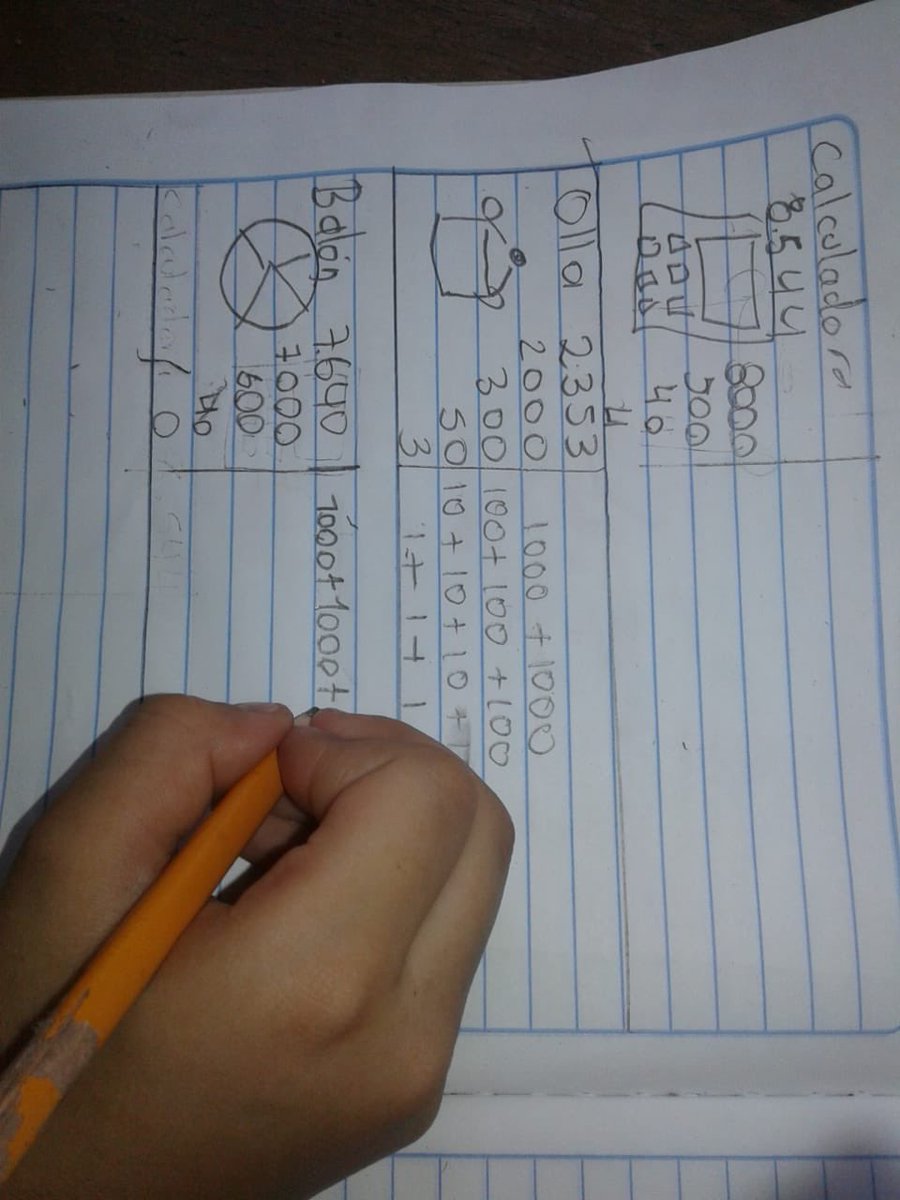 Calculadora
8.544 8000
500
40
4
Olla 2.353
2000 1000 + 1000
300 100 + 100 + 100
50 10 + 10 + 10 +
3 1 + 1 + 1
Balón 7.640 1000 + 1000 +
7000
600
40
0